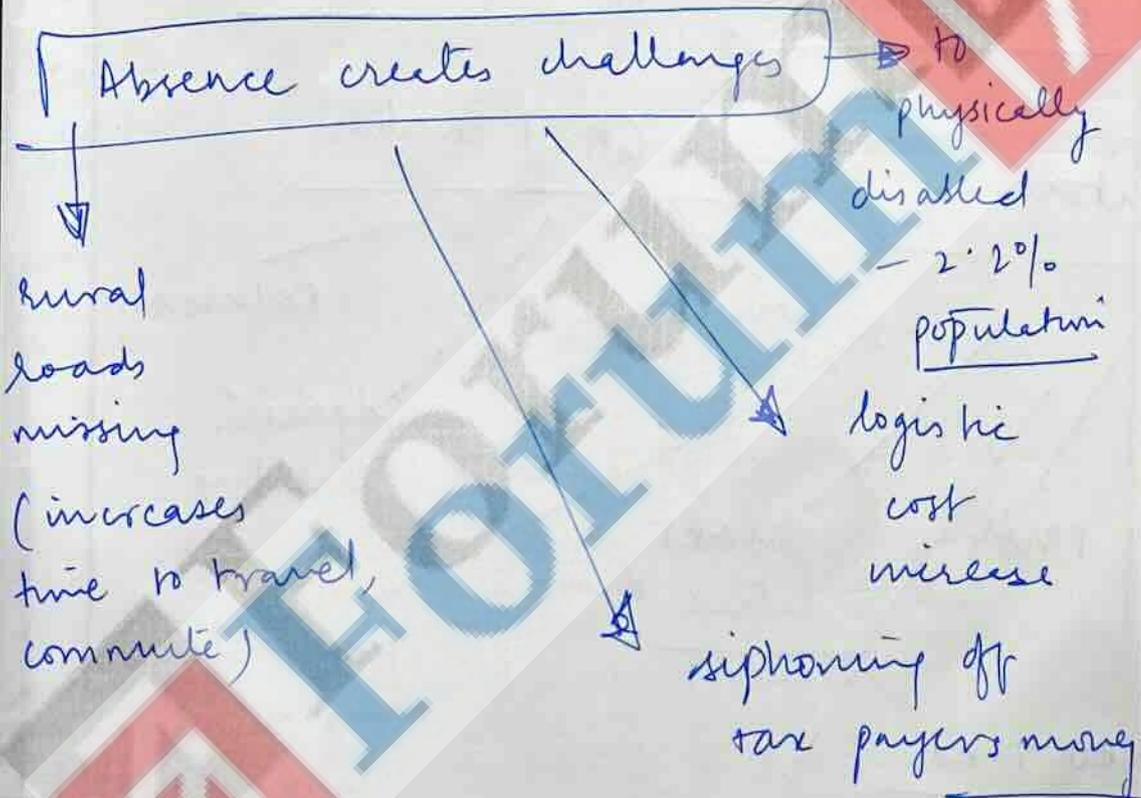 Absence creates challenges
to
physically
disabled
- 2.2%
population
rural
roads
missing
(increases
time to travel,
commute)
logistic
cost
increase
siphoning off
tax payers money
Forum